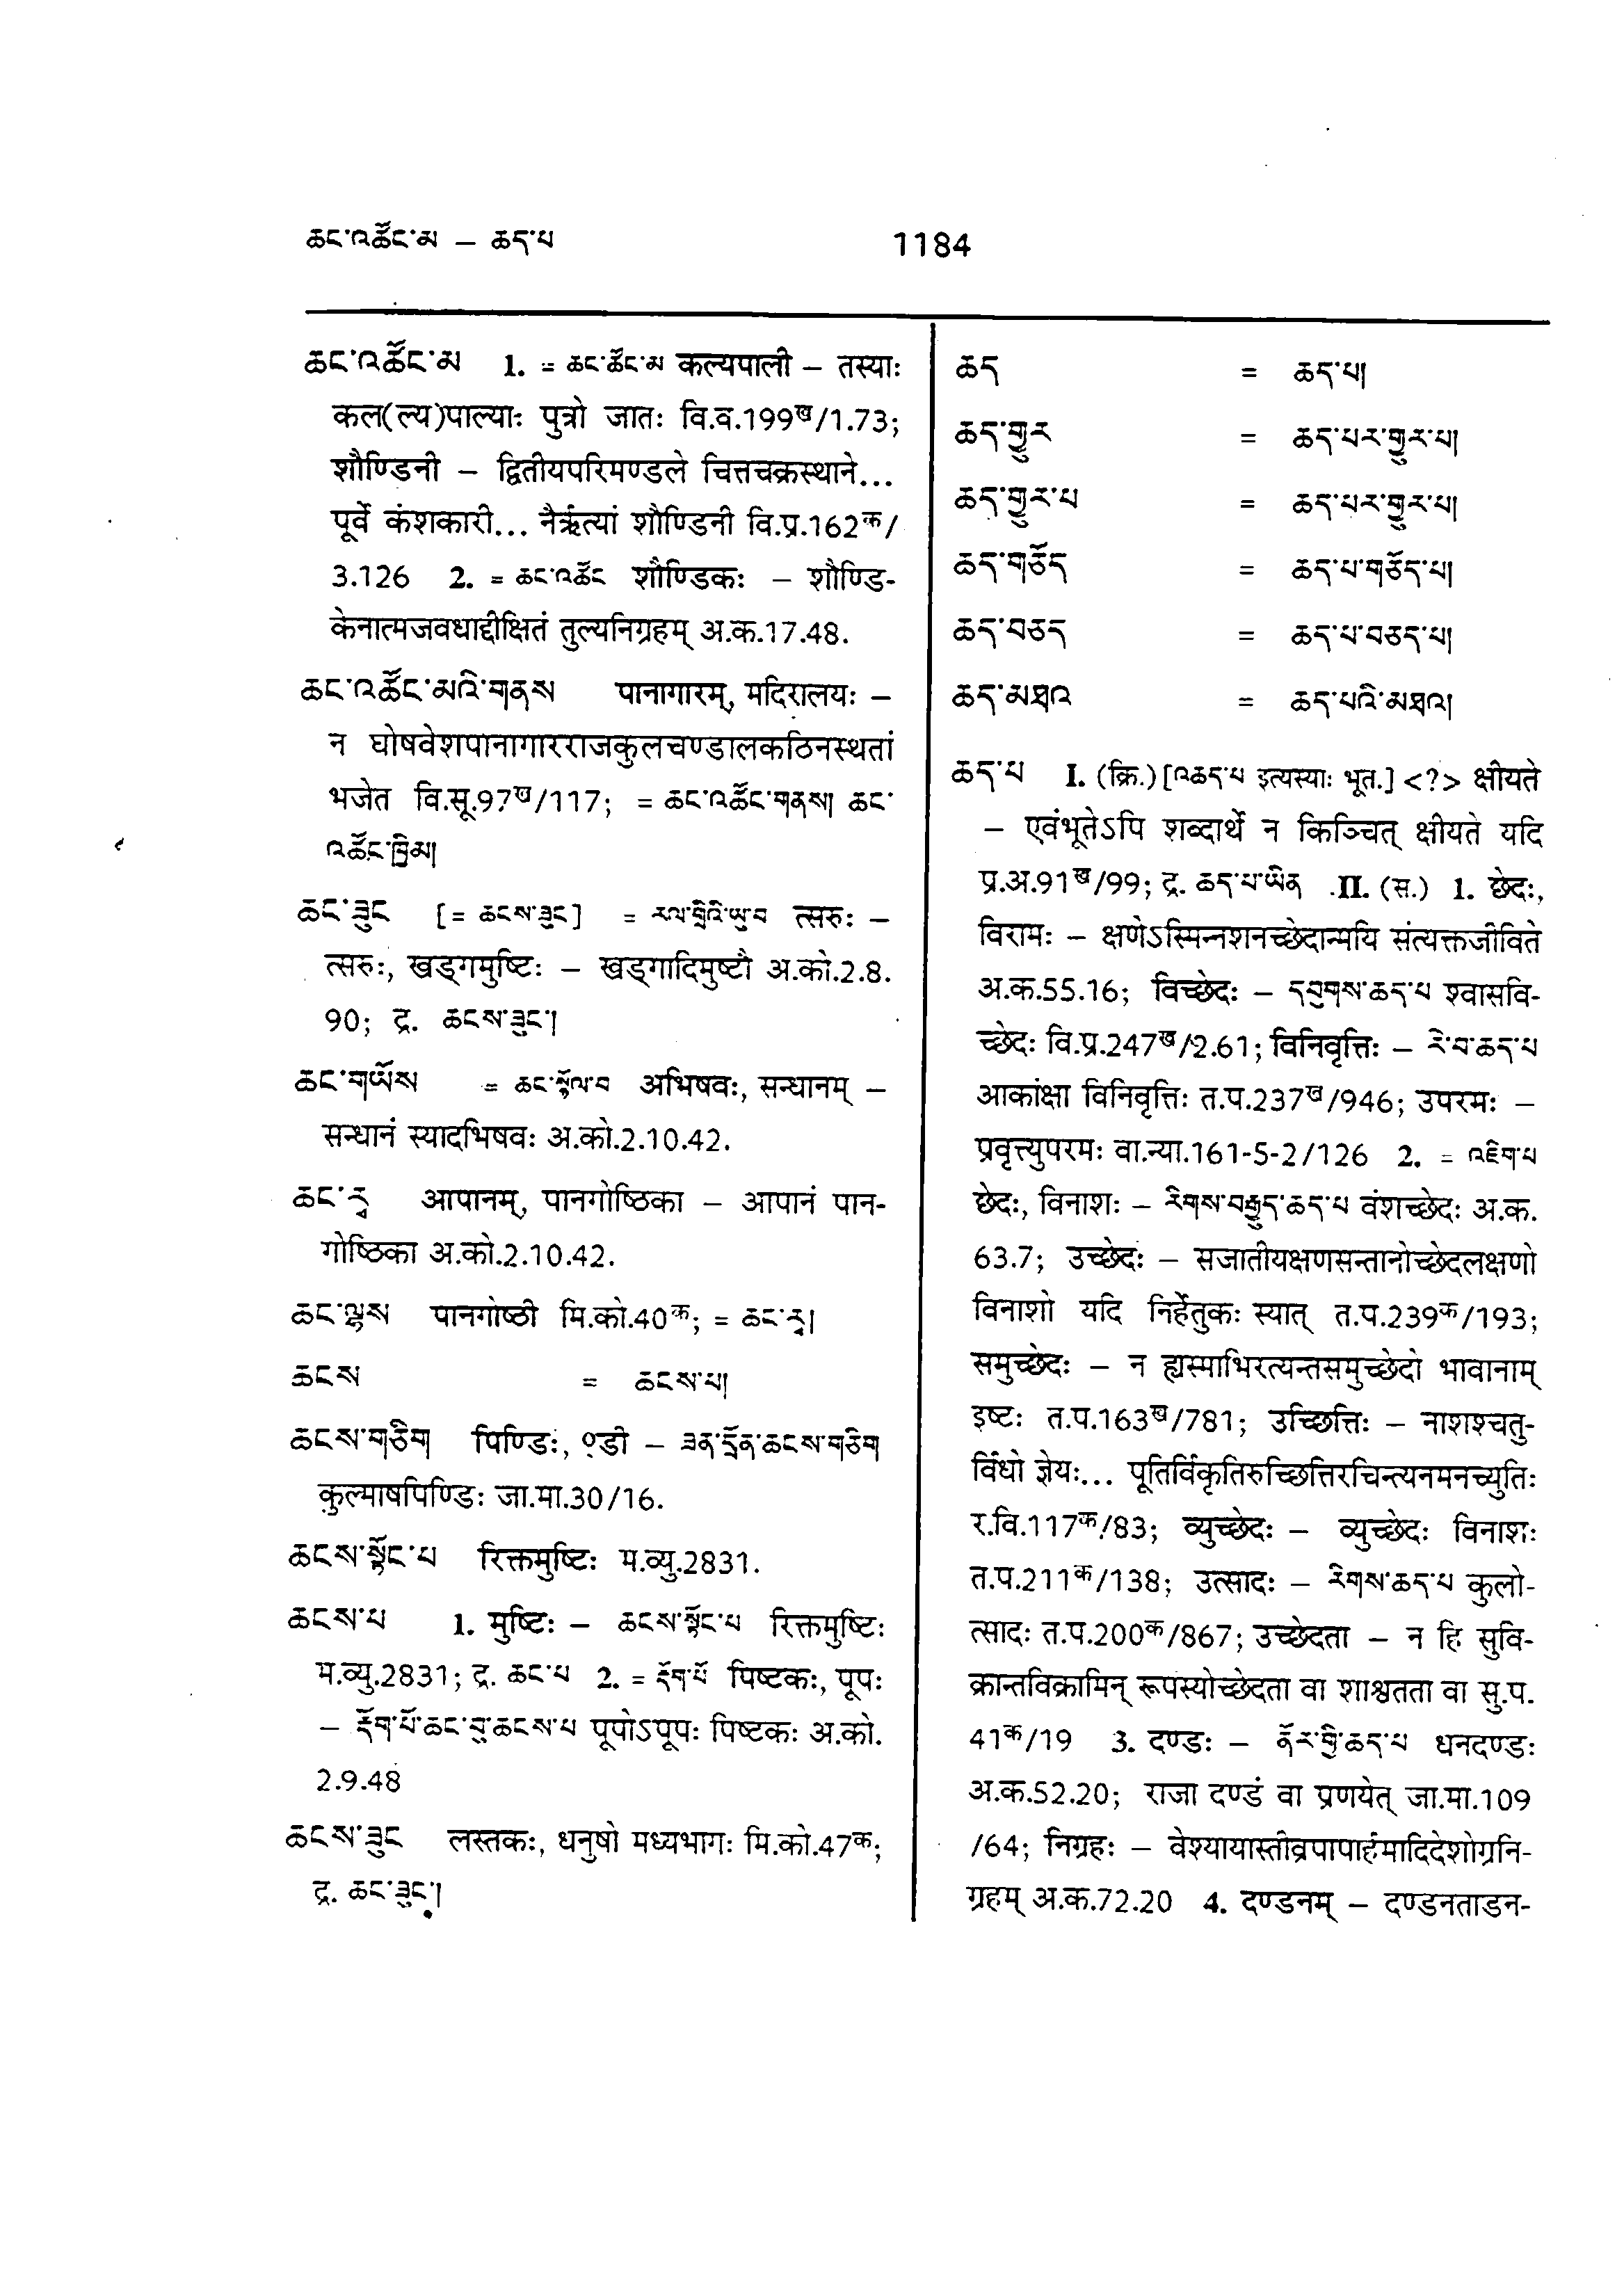 ཆང་འཚོང་མ – ཆད་པ 1184
ཆང་འཚོང་མ 1. = ཆང་ཚོང་མ कल्यपाली – तस्याः
कल(ल्य)पाल्याः पुत्रो जातः वि.व.199ख/1.73;
शौण्डिनी – द्वितीयपरिमण्डले चित्तचक्रस्थाने...
पूर्वे कंशकारी... नैर्ऋत्यां शौण्डिनी वि.प्र.162क/
3.126 2. = ཆང་འཚོང शौण्डिकः – शौण्डि-
केनात्मजवधाद्दीक्षितं तुल्यनिग्रहम् अ.क.17.48.
ཆང་འཚོང་མའི་གནས पानागारम्, मदिरालयः –
न घोषवेशपानागारराजकुलचण्डालकठिनस्थतां
भजेत वि.सू.97ख/117; = ཆང་འཚོང་གནས། ཆང་
འཚོང་ཁྲིམ།
ཆང་ཟུང [= ཆངས་ཟུང] = རལ་གྲིའི་ཡུ་བ त्सरुः –
त्सरुः, खड्गमुष्टिः – खड्गादिमुष्टौ अ.को.2.8.
90; द्र. ཆངས་ཟུང།
ཆང་གཡོས = ཆང་སྙོལ་བ अभिषवः, सन्धानम् –
सन्धानं स्यादभिषवः अ.को.2.10.42.
ཆང་ར྄ आपानम्, पानगोष्ठिका – आपानं पान-
गोष्ठिका अ.को.2.10.42.
ཆང་ལྷས पानगोष्ठी मि.को.40क; = ཆང་རྭ།
ཆངས = ཆངས་པ།
ཆངས་གཅིག पिण्डिः, ०डी – ཟན་དྲོན་ཆངས་གཅིག
कुल्माषपिण्डिः जा.मा.30/16.
ཆངས་སྟོང་པ रिक्तमुष्टिः म.व्यु.2831.
ཆངས་པ 1. मुष्टिः – ཆངས་སྟོང་པ रिक्तमुष्टिः
म.व्यु.2831; द्र. ཆང་པ 2. = དོག་པོ पिष्टकः, पूपः
– དོག་པོ་ཆང་བུ་ཆངས་པ पूपोऽपूपः पिष्टकः अ.को.
2.9.48
ཆངས་ཟུང लस्तकः, धनुषो मध्यभागः मि.को.47क;
द्र. ཆང་ཟུང།
ཆད = ཆད་པ།
ཆད་གྱུར = ཆད་པར་གྱུར་པ།
ཆད་གྱུར་པ = ཆད་པར་གྱུར་པ།
ཆད་གཅོད = ཆད་པ་གཅོད་པ།
ཆད་བཅད = ཆད་པ་བཅད་པ།
ཆད་མཐའ = ཆད་པའི་མཐའ།
ཆད་པ I. (क्रि.) [འཆད་པ इत्यस्याः भूत.] <?> क्षीयते
– एवंभूतेऽपि शब्दार्थे न किञ्चित् क्षीयते यदि
प्र.अ.91ख/99; द्र. ཆད་པ་ཡིན II. (स.) 1. छेदः,
विरामः – क्षणेऽस्मिन्नशनच्छेदान्मयि संत्यक्तजीविते
अ.क.55.16; विच्छेदः – དབུགས་ཆད་པ श्वासवि-
च्छेदः वि.प्र.247ख/2.61; विनिवृत्तिः – རེ་བ་ཆད་པ
आकांक्षा विनिवृत्तिः त.प.237ख/946; उपरमः –
प्रवृत्त्युपरमः वा.न्या.161-5-2/126 2. = འཇིག་པ
छेदः, विनाशः – རིགས་བརྒྱུད་ཆད་པ वंशच्छेदः अ.क.
63.7; उच्छेदः – सजातीयक्षणसन्तानोच्छेदलक्षणो
विनाशो यदि निर्हेतुकः स्यात् त.प.239क/193;
समुच्छेदः – न ह्यस्माभिरत्यन्तसमुच्छेदो भावानाम्
इष्टः त.प.163ख/781; उच्छित्तिः – नाशश्चतु-
र्विधो ज्ञेयः... पूतिर्विकृतिरुच्छित्तिरचिन्त्यनमनच्युतिः
र.वि.117क/83; व्युच्छेदः – व्युच्छेदः विनाशः
त.प.211क/138; उत्सादः – རིགས་ཆད་པ कुलो-
त्सादः त.प.200क/867; उच्छेदता – न हि सुवि-
क्रान्तविक्रामिन् रूपस्योच्छेदता वा शाश्वतता वा सु.प.
41क/19 3. दण्डः – ནོར་གྱི་ཆད་པ धनदण्डः
अ.क.52.20; राजा दण्डं वा प्रणयेत् जा.मा.109
/64; निग्रहः – वेश्यायास्तीव्रपापार्हमादिदेशोग्रनि-
ग्रहम् अ.क.72.20 4. दण्डनम् – दण्डनताडन-